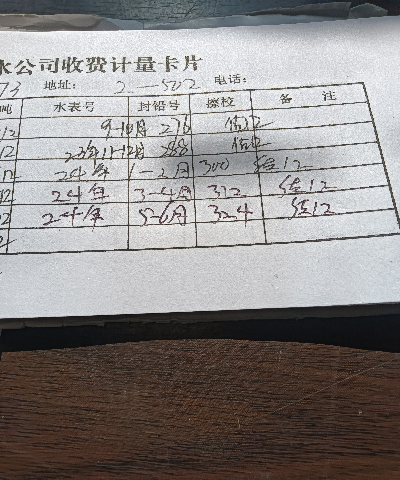 水公司收费计量卡片
73 地址: 2-502 电话:
吨 水表号 封铅号 擦校 备 注
12 9-10月 276 估12
12 23年11-12月 288 估12
12 24年 1-2月 300 估12
12 24年 3-4月 312 估12
12 24年 5-6月 324 估12